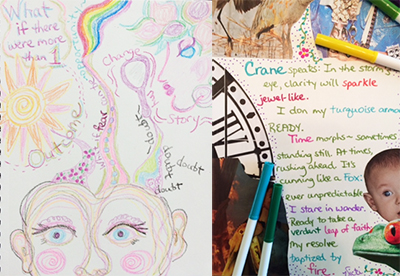 What
if there
were more
than 1
Change
fear
doubt
story
Outcome
doubt
doubt
Crane speaks: In the storm's
eye, clarity will sparkle
jewel-like.
I don my turquoise armor
READY.
Time morphs - sometimes
standing still. At times,
rushing ahead. It's
cunning like a Fox:
ever unpredictable.
I stare in wonder.
Ready to take a
verdant leap of faith,
my resolve
baptized by
fire.